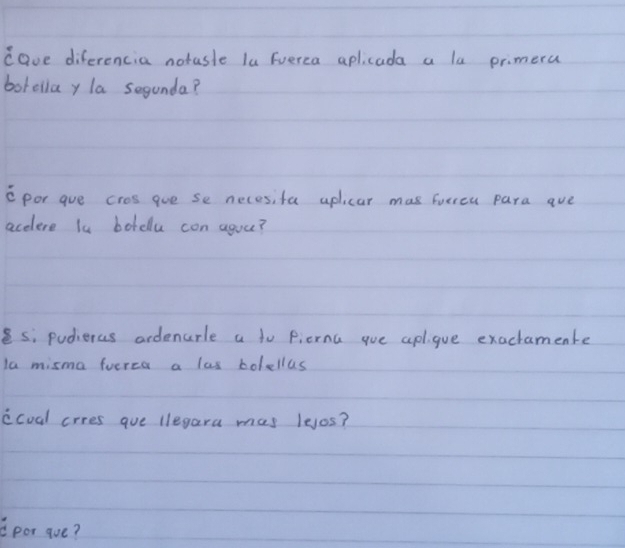 ¿Que diferencia notaste la fuerza aplicada a la primera
botella y la segunda?
¿por que cres que se necesita aplicar mas fuerza para que
acelere la botella con agua?
si pudieras ordenarle a tu pierna que aplique exactamente
la misma fuerza a las botellas
¿cual crres que llegara mas lejos?
¿por que?